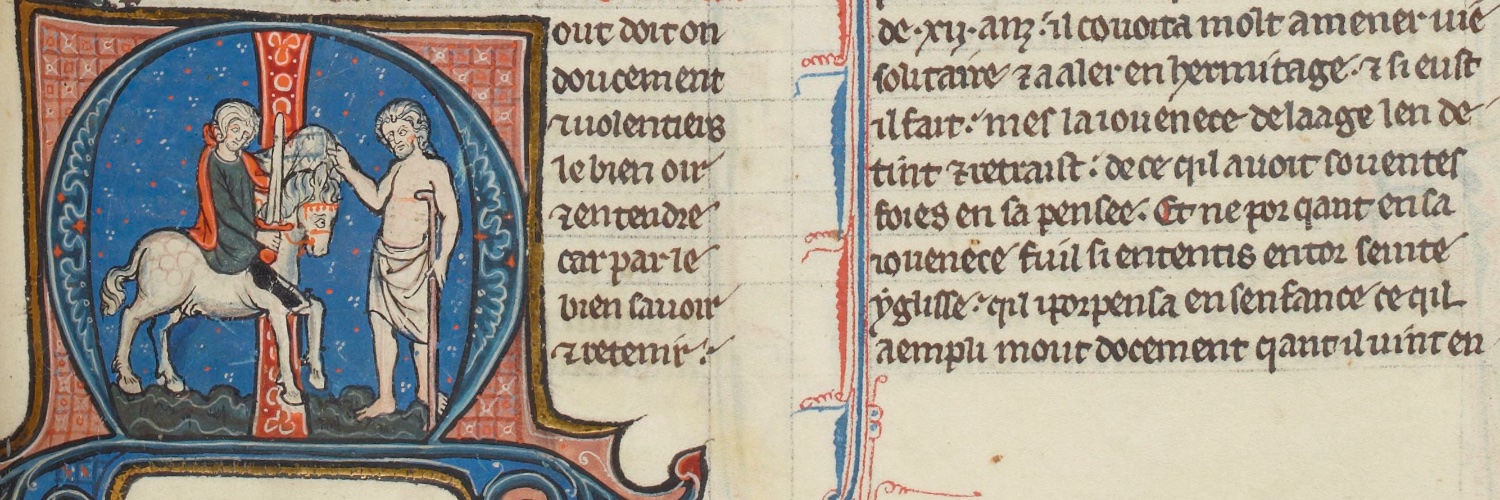 out doit on
doucement
⁊ uolentiers
le bien oir
⁊ entendre
car par le
bien sauoir
⁊ retenir
de .xij. anz . il couoita molt a mener uie
solitaire ⁊ a aler en hermitage . ⁊ si eust
il fait . mes la iouenece de laage len de
tint ⁊ retraist . de ce qil auoit souentes
foies en sa pensee . Et ne por qant en sa
iouenece fu il si ententis entor seinte
yglisse . qil iporpensa en senfance ce qil
aempli mout docement qant il uint en